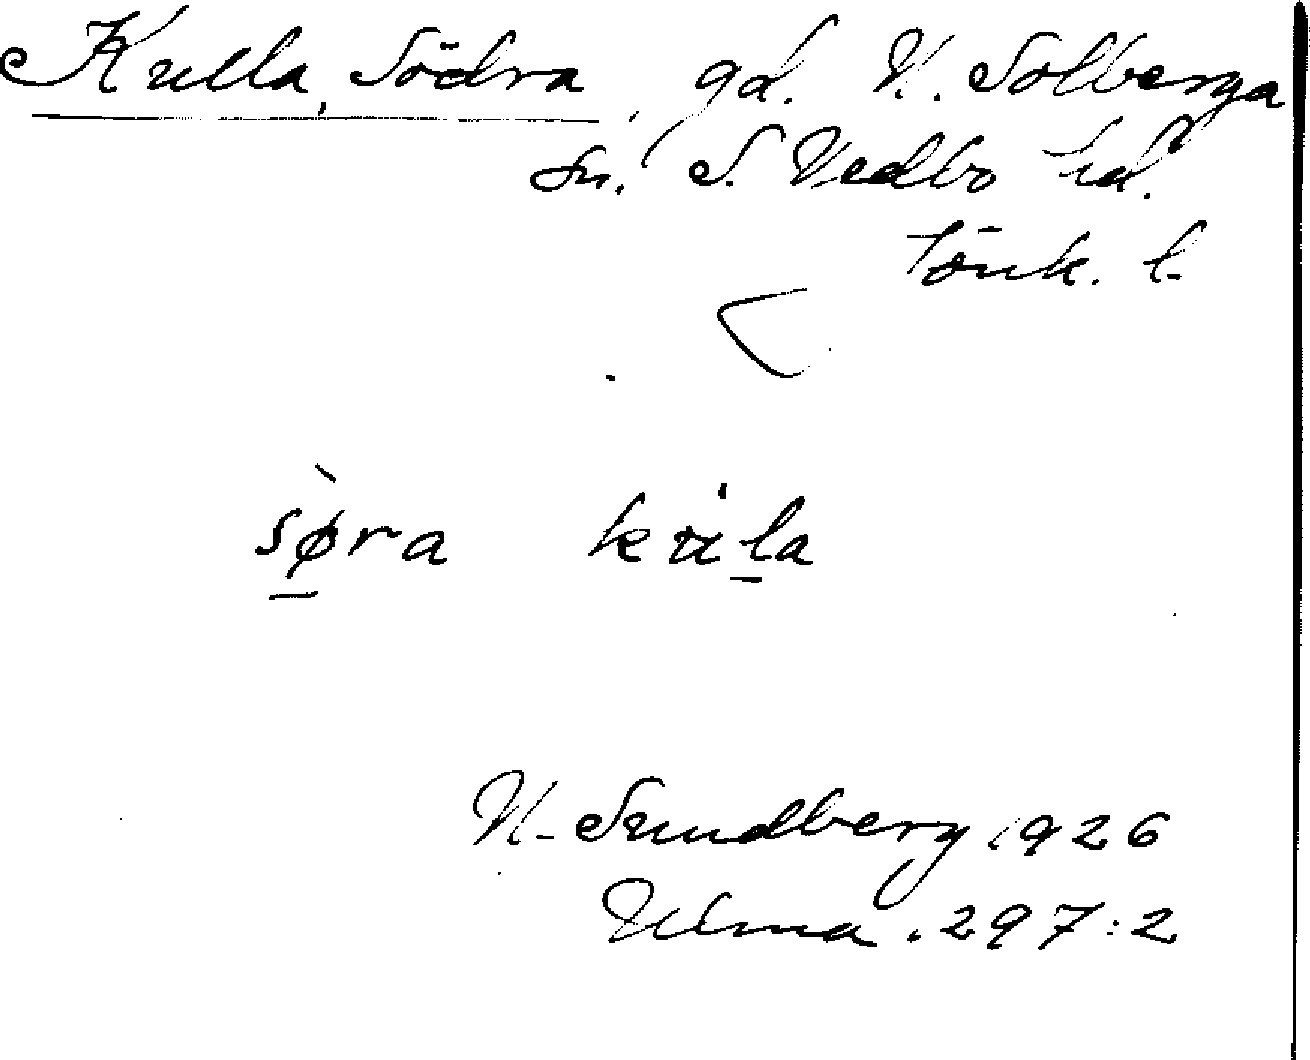 Kulla, Södra, gd. N. Solberga
sn. S. Vedbo hd.
Jönk. l.
sø̀ra kula
H. Sundberg 1926
Ulma. 297:2